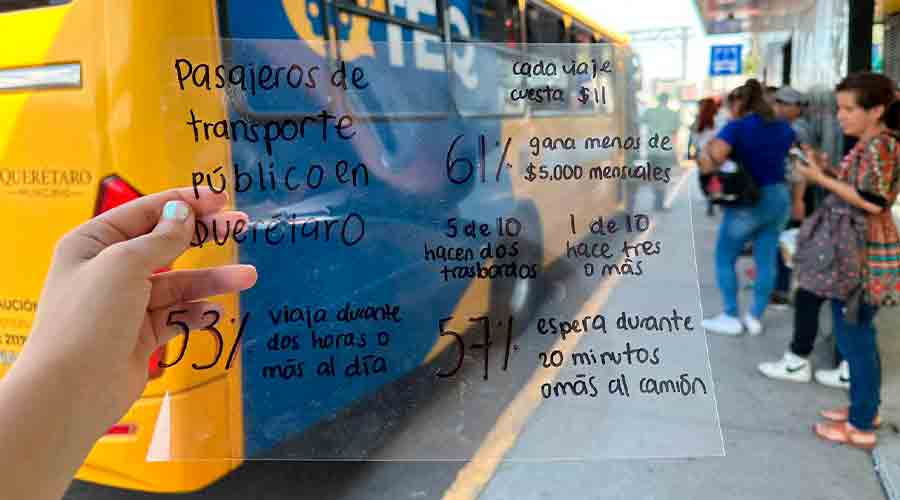 Pasajeros de
transporte
público en
Querétaro
cada viaje
cuesta $11
61% gana menos de
$5,000 mensuales
5 de 10
hacen dos
trasbordos
1 de 10
hace tres
o más
53% viaja durante
dos horas o
más al día
57% espera durante
20 minutos
o más al camión
QUERETARO
TEQ